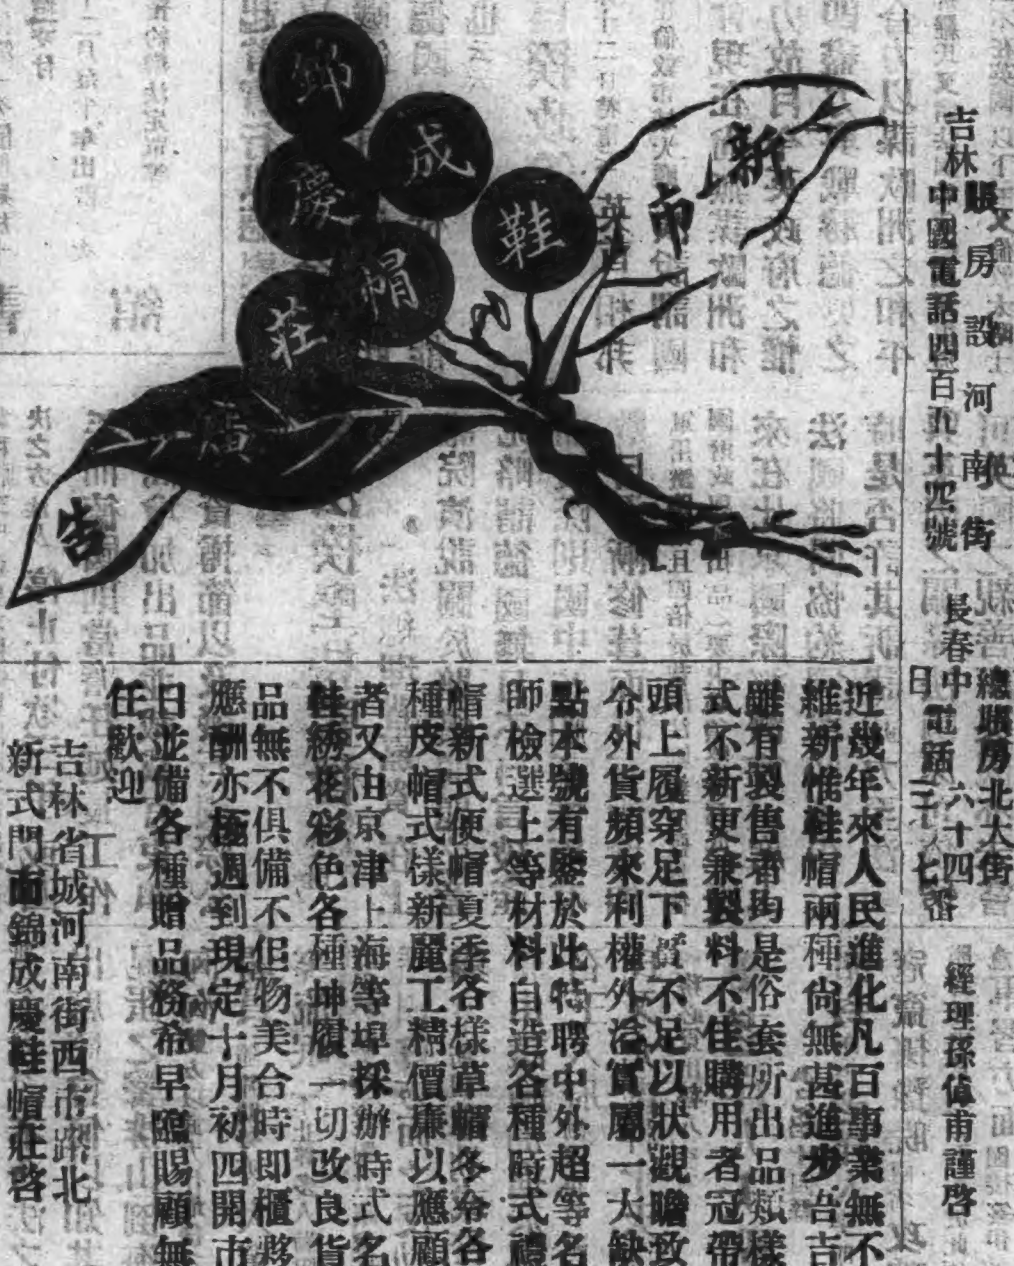 新市
錦成慶鞋帽莊
廣告
吉林
賬房設河南街
中國電話四百五十四號
長春
總賬房北大街
中
日電話
六十四
七番
經理孫值甫謹啓
近幾年來人民進化凡百事業無不
維新惟鞋帽兩種尚無甚進步吾吉
雖有製售者均是俗套所出品類樣
式不新更兼製料不佳購用者冠帶
頭上履穿足下實不足以狀觀瞻致
令外貨頻來利權外洽實屬一大缺
點本號有鑒於此特聘中外超等名
師檢選上等材料自造各種時式禮
帽新式便帽夏季各樣草帽冬令各
種皮帽式樣新麗工精價廉以應顧
者又由京津上海等埠採辦時式名
鞋綉花彩色各種坤履一切改良貨
品無不俱備不但物美合時即櫃夥
應酬亦極週到現定十月初四開市
日並備各種贈品務希早臨賜顧無
任歡迎
吉林省城河南街西市路北
新式門面錦成慶鞋帽莊啓